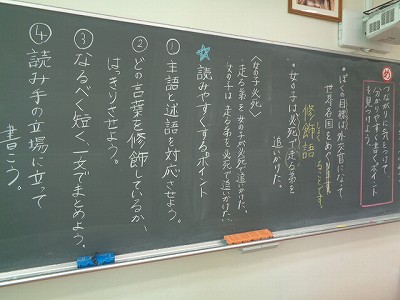 め
つながりに気をつけて、
分かりやすく書くポイント
を見つけよう。
・ぼくの目標は外交官になって
世界各国をめぐります
ることです。
修飾語
・女の子は必死で走る弟を
追いかけた。
〈女の子が必死〉
・走る弟を女の子が必死で追いかけた。
・女の子は、走る弟を必死で追いかけた。
読みやすくするポイント
①主語と述語を対応させよう。
②どの言葉を修飾しているか、
はっきりさせよう。
③なるべく短く、一文でまとめよう。
④読み手の立場に立って
書こう。